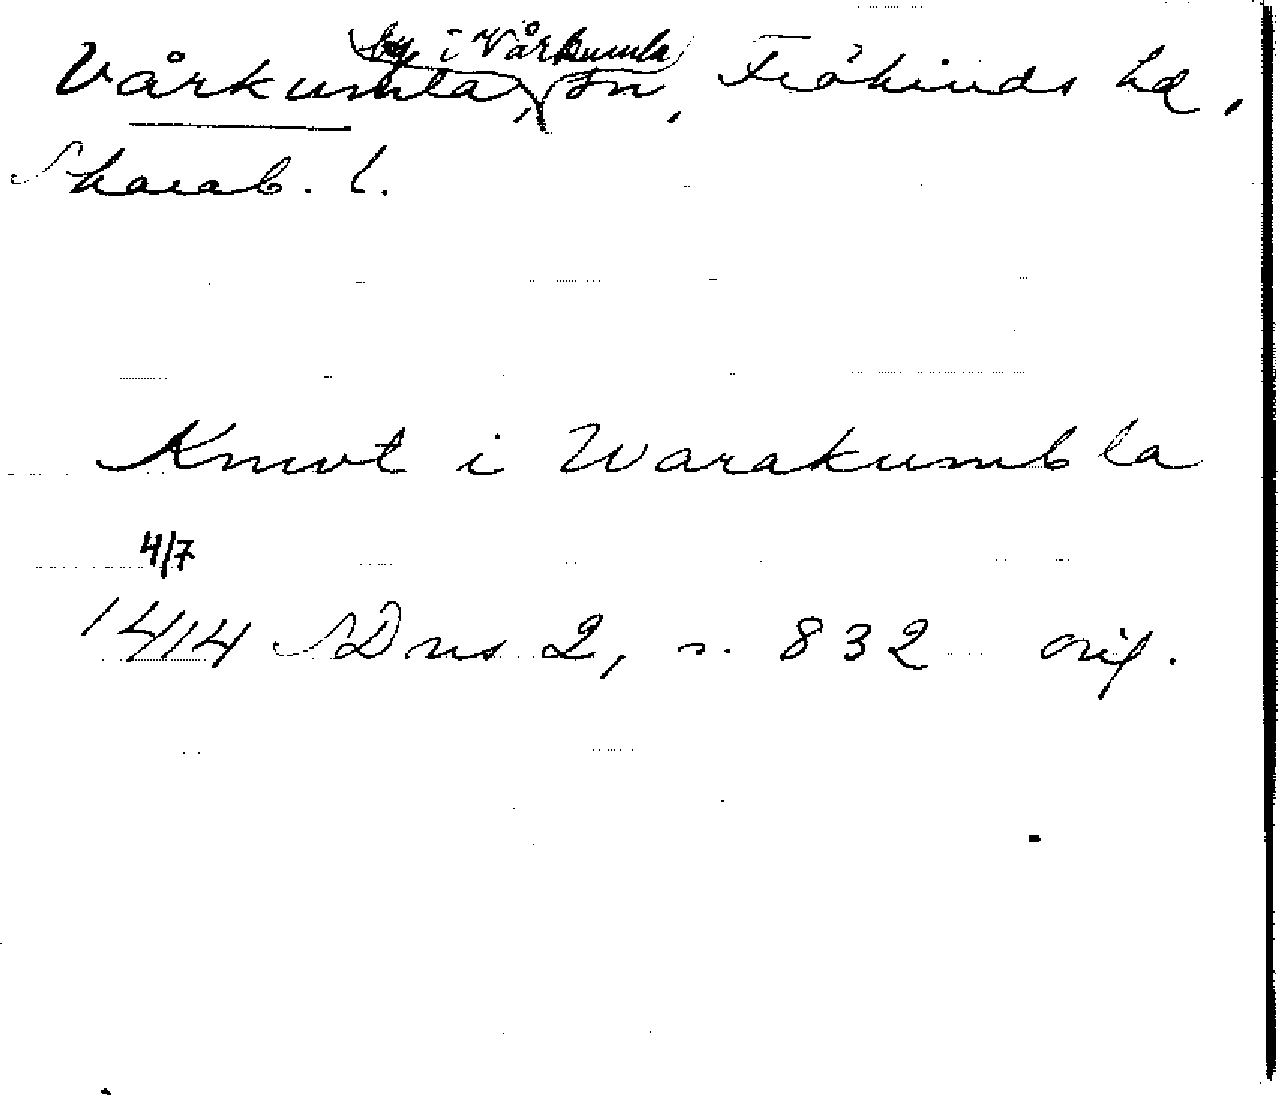 Vårkumla, by i Vårkumla sn, Frökinds hd,
Skarab. l.
Knwt i Warakumbla
4/7
1414 SDns 2, s. 832 orig.